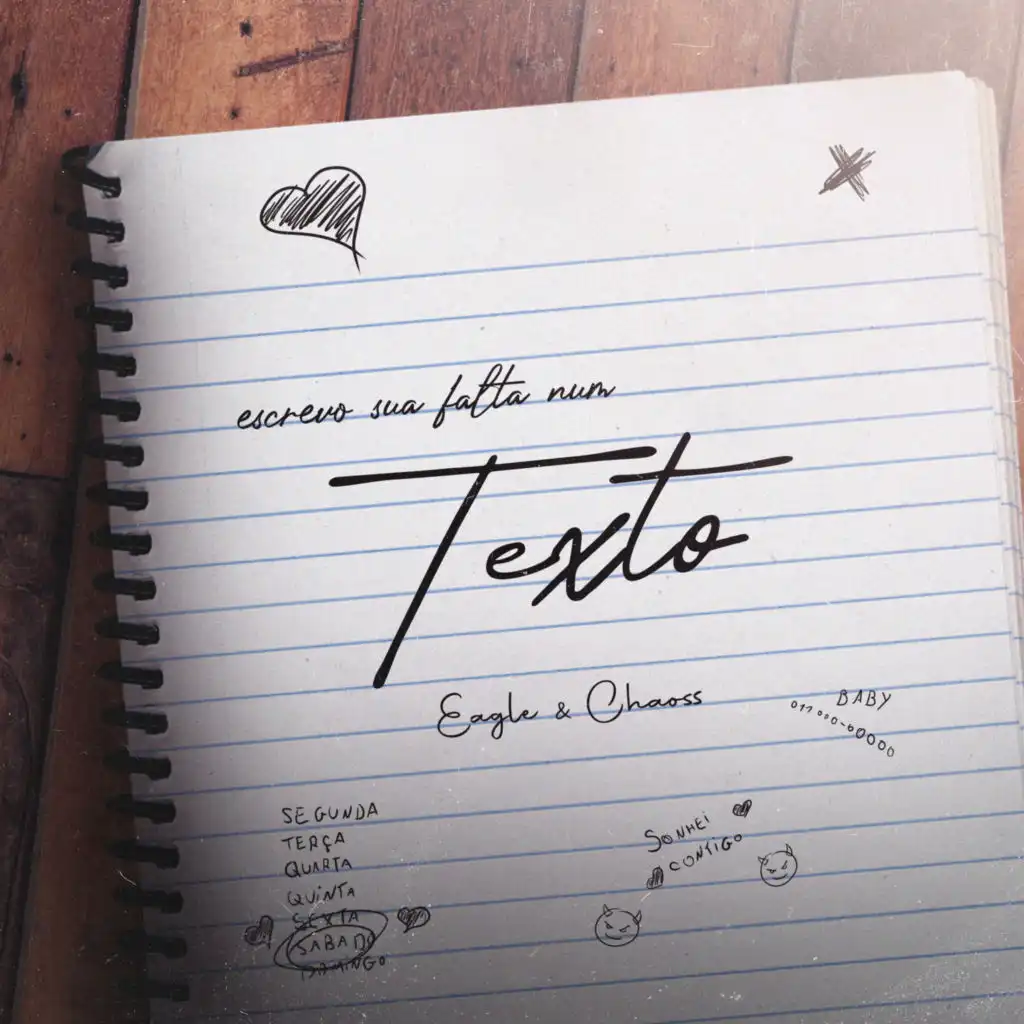 escrevo sua falta num
Texto
Eagle & Chaoss
BABY
011 000-00000
SEGUNDA
TERÇA
QUARTA
QUINTA
SEXTA
SABADO
DOMINGO
SONHEI
CONTIGO